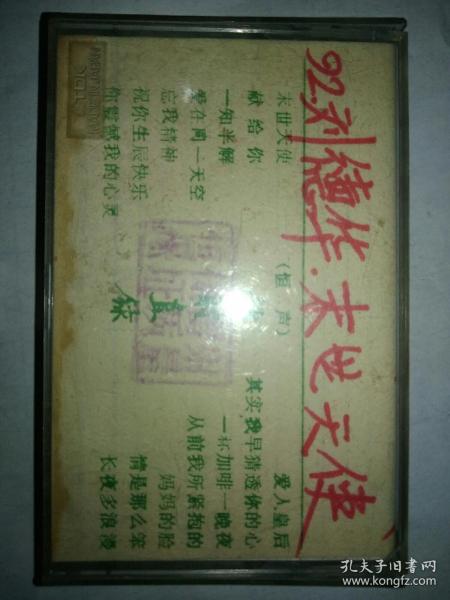 92.刘德华.末世天使
(恒声)
末世天使
献给你
一知半解
爱在同一天空
忘我精神
祝你生辰快乐
你震撼我的心灵
爱人皇后
其实我早猜透你的心
一杯加啡一晚夜
从前我所紧抱的
妈妈的脸
情是那么笨
长夜多浪漫
孔夫子旧书网
www.kongfz.com